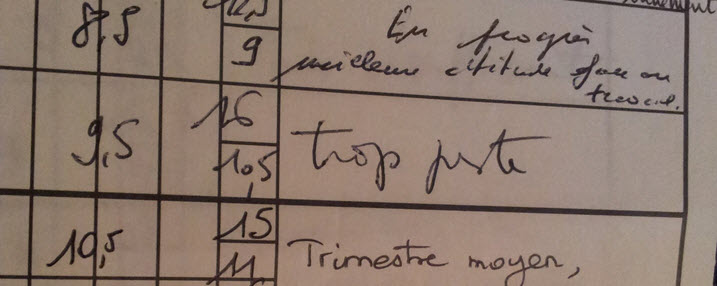 8,5
9
En progrès
meilleure attitude face au
travail.
9,5
16
10,5
trop juste
10,5
15
11,
Trimestre moyen,